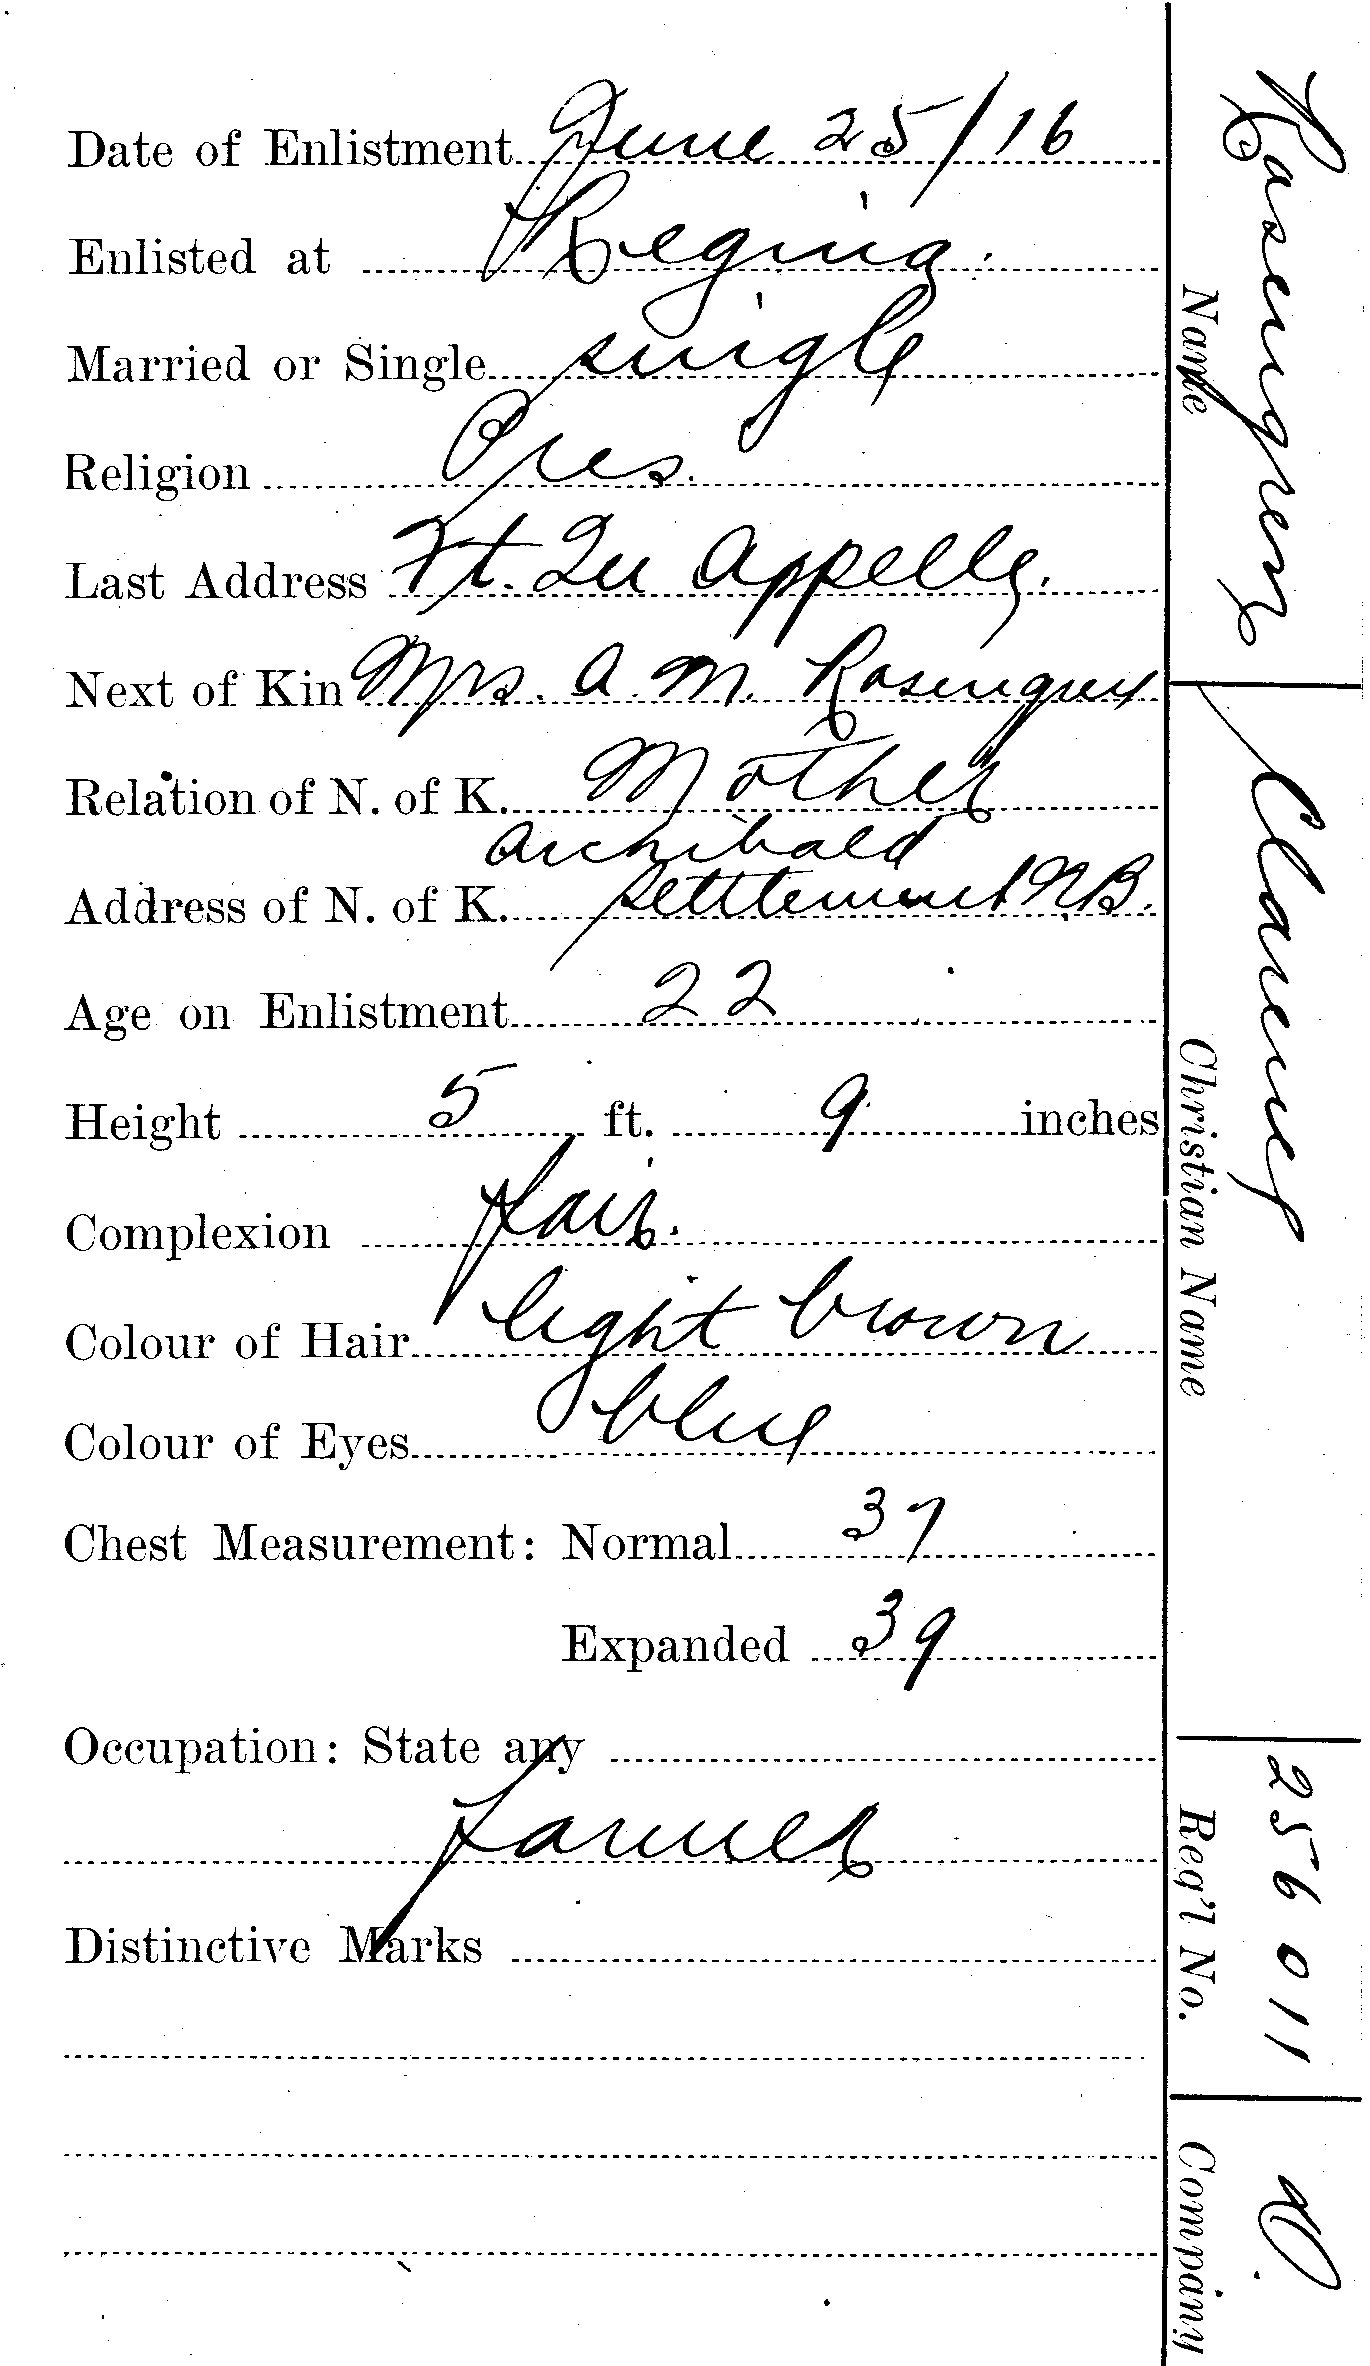 Date of Enlistment June 25/16
Enlisted at Regina.
Married or Single single
Religion Pres.
Last Address Ft. Qu Appelle.
Next of Kin Mrs. A. M. Rosengren
Relation of N. of K. Mother
Archibald
Address of N. of K. Settlement N.B.
Age on Enlistment 22
Height 5 ft. 9 inches
Complexion fair.
Colour of Hair light brown
Colour of Eyes blue
Chest Measurement: Normal 37
Expanded 39
Occupation: State any
farmer
Distinctive Marks
Rosengren Clarence 256011 D.
Name Christian Name Reg'l No. Company